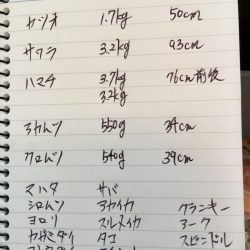 カツオ 1.7kg 50cm
サワラ 3.2kg 93cm
ハマチ 3.7kg 76cm前後
3.2kg
アカムツ 550g 34cm
クロムツ 540g 39cm
マハタ サバ
シロムツ アカイカ クランキー
ヨロリ スルメイカ アーク
カガミダイ タコ スピンドル